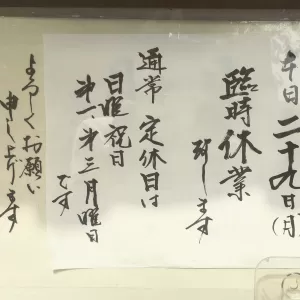 本日二十九日(月)
臨時休業
致します
通常定休日は
日曜祝日
第一、第三月曜日
です
よろしくお願い
申し上げます